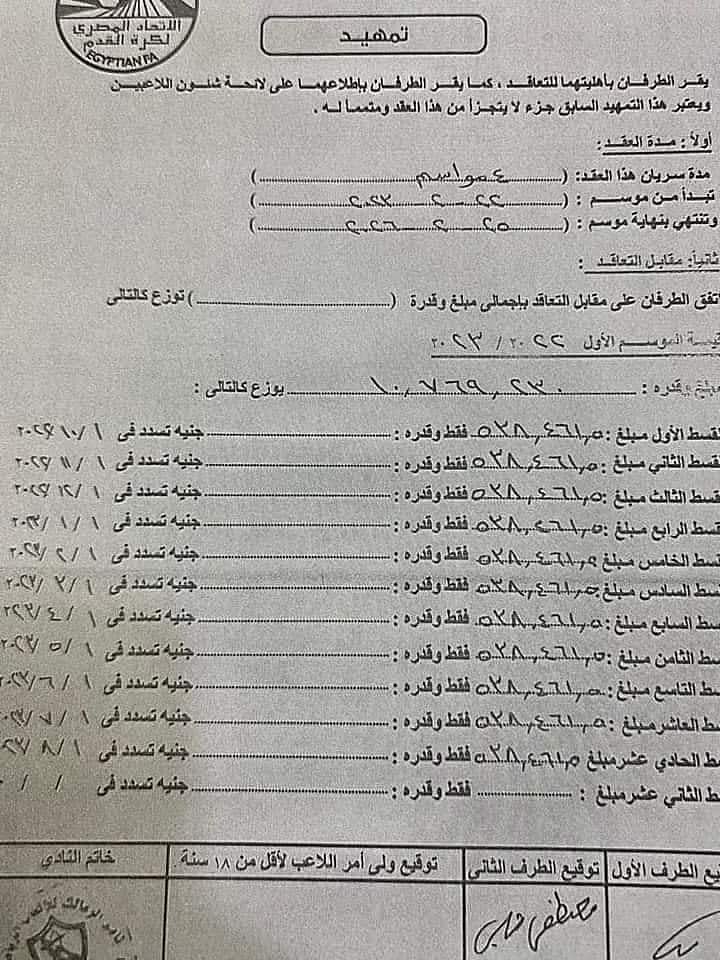 الاتحاد المصري
لكرة القدم
EGYPTIAN FA
تمهيد
يقر الطرفان بأهليتهما للتعاقد ، كما يقر الطرفان بإطلاعهما على لائحة شئون اللاعبين
ويعتبر هذا التمهيد السابق جزء لا يتجزأ من هذا العقد ومتمماً له .
أولاً : مدة العقد :
مدة سريان هذا العقد: (٤ مواسم)
تبدأ من موسم : (٢٠٢٢ ٢٠٢٣)
وتنتهي بنهاية موسم : (٢٠٢٥ ٢٠٢٦)
ثانياً: مقابل التعاقد :
اتفق الطرفان على مقابل التعاقد بإجمالى مبلغ وقدرة (..........) توزع كالتالى
قيمة الموسم الأول ٢٠٢٢ / ٢٠٢٣
مبلغ وقدره : ١٠,٧٦٩,٢٣٠ يوزع كالتالى :
قسط الأول مبلغ : ٥٣٨,٤٦١,٥ فقط وقدره : .......... جنيه تسدد فى ١ / ١٠ / ٢٠٢٢
قسط الثاني مبلغ : ٥٣٨,٤٦١,٥ فقط وقدره : .......... جنيه تسدد فى ١ / ١١ / ٢٠٢٢
قسط الثالث مبلغ : ٥٣٨,٤٦١,٥ فقط وقدره : .......... جنيه تسدد فى ١ / ١٢ / ٢٠٢٢
قسط الرابع مبلغ : ٥٣٨,٤٦١,٥ فقط وقدره : .......... جنيه تسدد فى ١ / ١ / ٢٠٢٣
سط الخامس مبلغ : ٥٣٨,٤٦١,٥ فقط وقدره : .......... جنيه تسدد فى ١ / ٢ / ٢٠٢٣
سط السادس مبلغ : ٥٣٨,٤٦١,٥ فقط وقدره : .......... جنيه تسدد فى ١ / ٣ / ٢٠٢٣
سط السابع مبلغ : ٥٣٨,٤٦١,٥ فقط وقدره : .......... جنيه تسدد فى ١ / ٤ / ٢٠٢٣
سط الثامن مبلغ : ٥٣٨,٤٦١,٥ فقط وقدره : .......... جنيه تسدد فى ١ / ٥ / ٢٠٢٣
سط التاسع مبلغ : ٥٣٨,٤٦١,٥ فقط وقدره : .......... جنيه تسدد فى ١ / ٦ / ٢٠٢٣
سط العاشر مبلغ : ٥٣٨,٤٦١,٥ فقط وقدره : .......... جنيه تسدد فى ١ / ٧ / ٢٠٢٣
سط الحادي عشر مبلغ ٥٣٨,٤٦١,٥ فقط وقدره : .......... جنيه تسدد فى ١ / ٨ / ٢٣
ط الثاني عشر مبلغ : .......... فقط وقدره : .......... جنيه تسدد فى / /
يع الطرف الأول توقيع الطرف الثانى توقيع ولى أمر اللاعب لأقل من ١٨ سنة خاتم النادي
نادي الزمالك للألعاب الرياضية